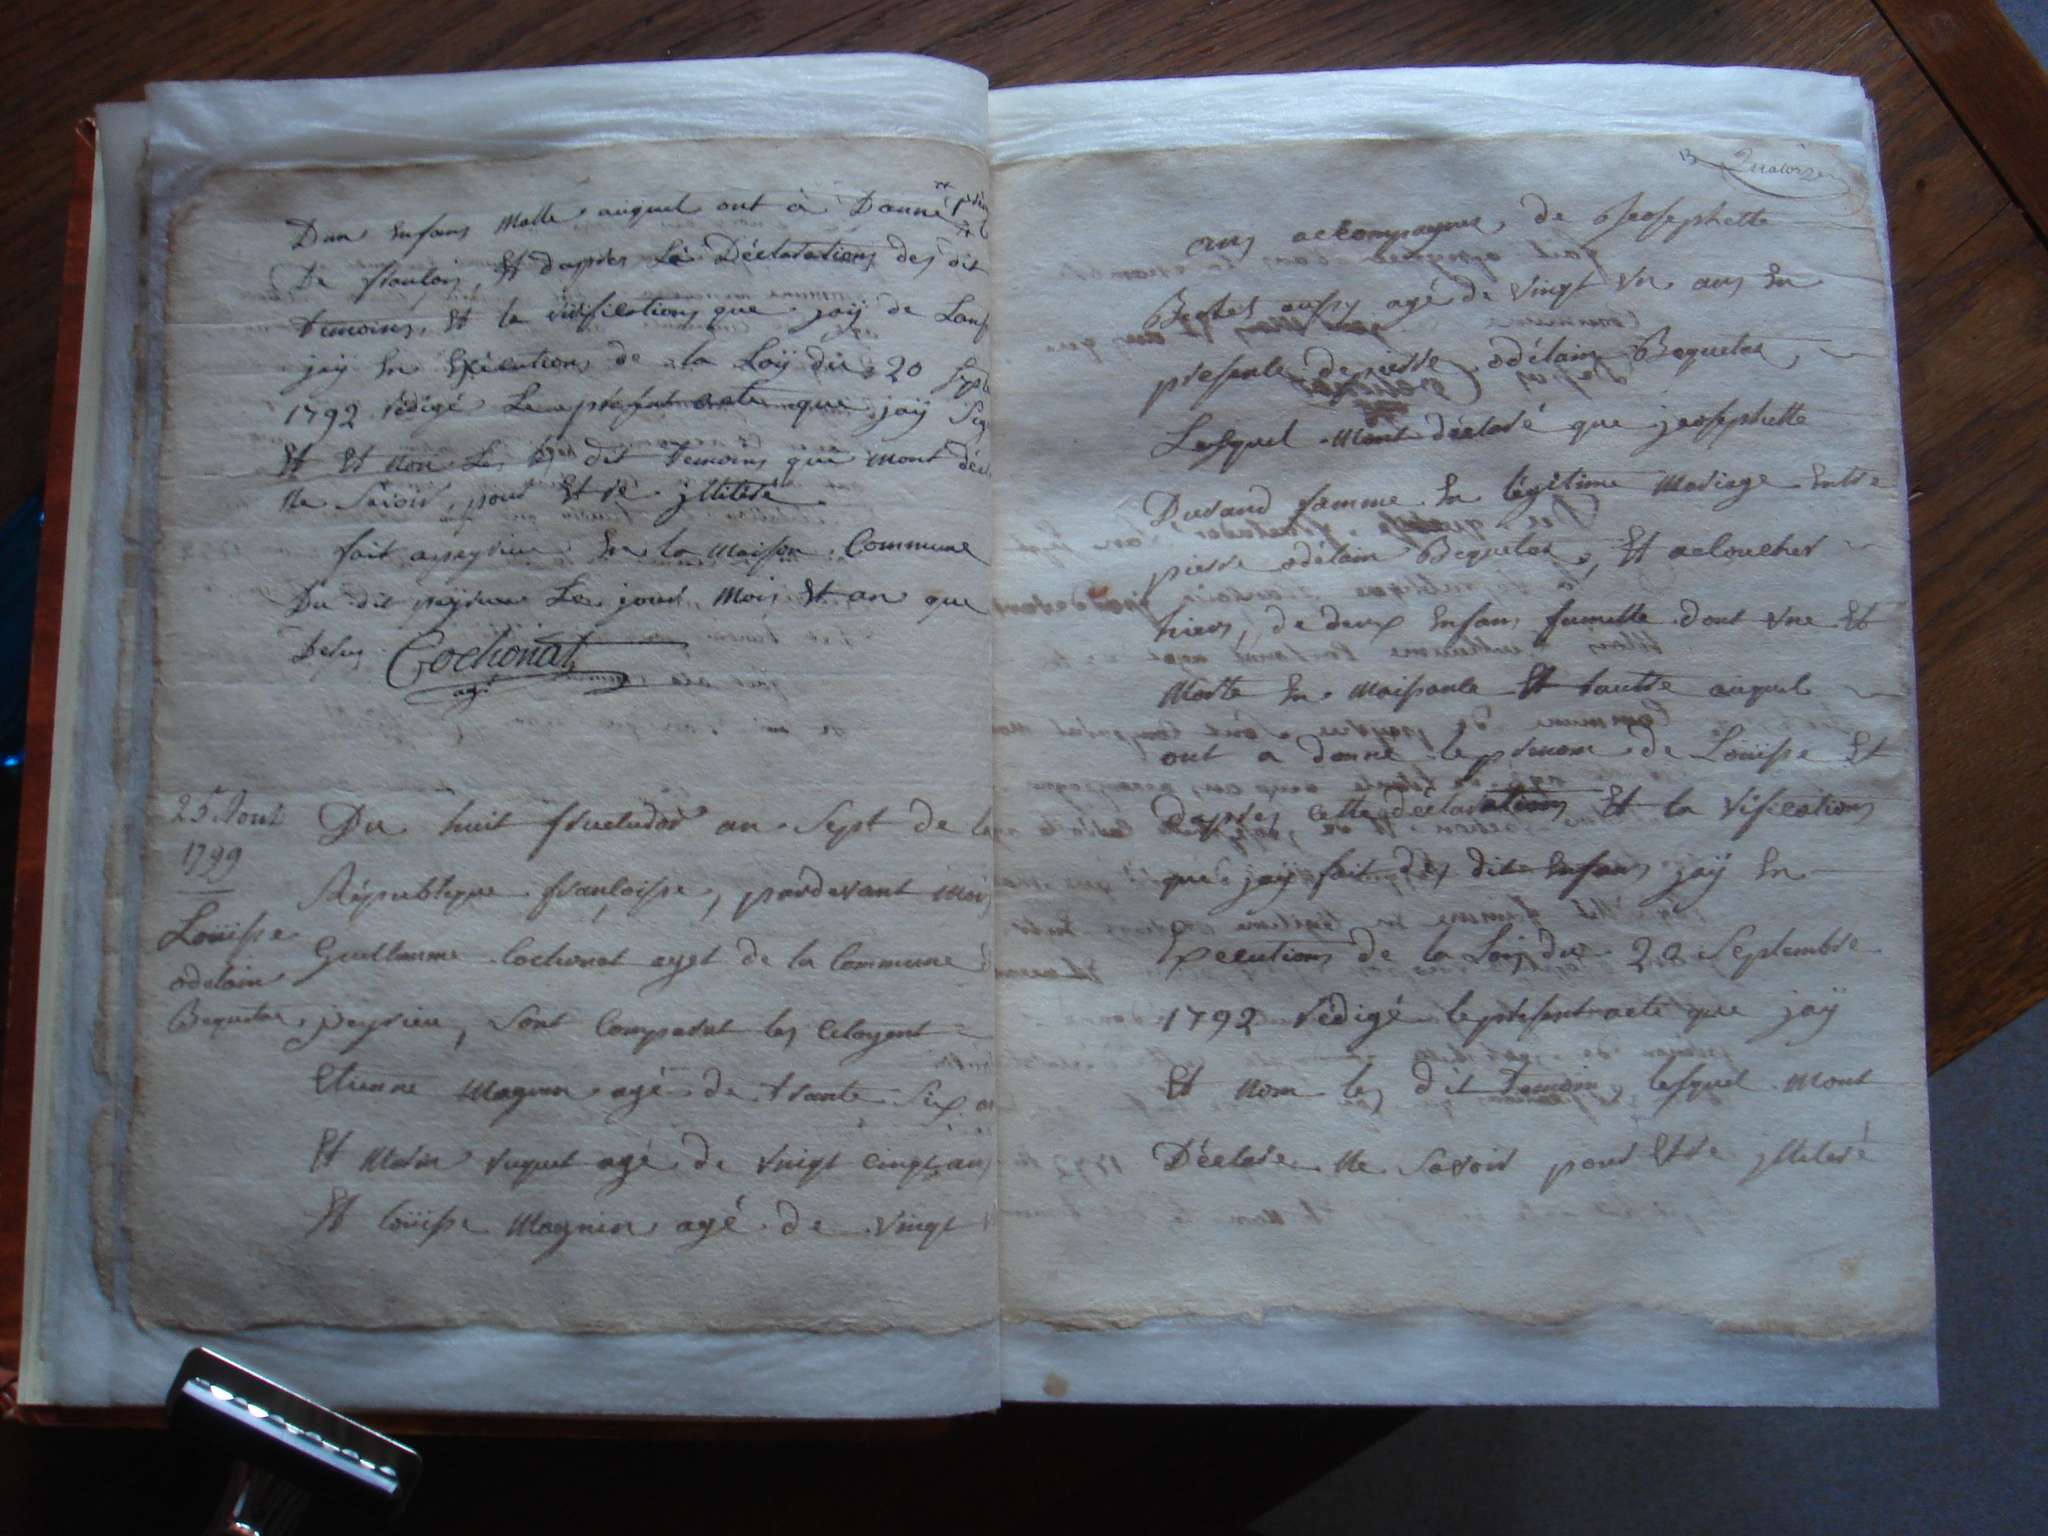 Dun Enfans Malle auquel ont à Donné
De francois, Et daprès Lá Déclarations des dit
temoins, Et la visfications que jaÿ de Lanf
jaÿ En Exécutions de la Loÿ du 20 septe
1792 rédigé Le present acte que jaÿ Sig
Et Et Non Les dit temoins que mont déc
Ne Savoir, pour Etre jlliteré
fait a peyrieu En la Maison Commune
Du dit peyrieu Le jour, Mois Et an que
Desus Cochonat
agt
25 Aout
1799
Loüisse
odelain
Bequetas
Du huit fructudor an Sept de la
République francoisse, pardevant Moy
Guillaume Cochonat aget de la Commune d
peyrieu, Sont Comparut les Citoyent
Etienne Magnin agé de trante Six an
Et Marin vuquet agé de vingt cinq ans
Et Loüisse Magnin agé de vingt
13 Quatorze
ans ackompagnes, de Jeosephette
Bertet aussy agé de vingt un ans En
presente de pierre odélain Bequetas
Lesquel Mont déclaré que jeosephette
Durand famme En légitime Mariage Entre
pierre odélain Bequetas, Et acloucher
hiers, de deux Enfans fumelle dont vne Et
Morte En Naissante Et lautre auquel
ont a donné le prenom de Loüisse Et
daprès cette déclarations Et la Visfications
que jaÿ fait des dit Enfans jaÿ En
Execcutions de la Loy du 20 Septembre
1792 rédigé le present acte que jaÿ
Et Nom les dit temoins, lesquel Mont
Déclare Ne Savoir pour Etre jlliteré